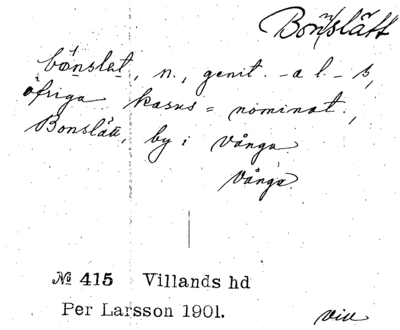 Bonslätt
bǫ́nslat, n., genit. -a l. -s,
öfriga kasus = nominat.,
Bonslätt, by i Vånga
Vånga
№ 415 Villands hd
Per Larsson 1901.